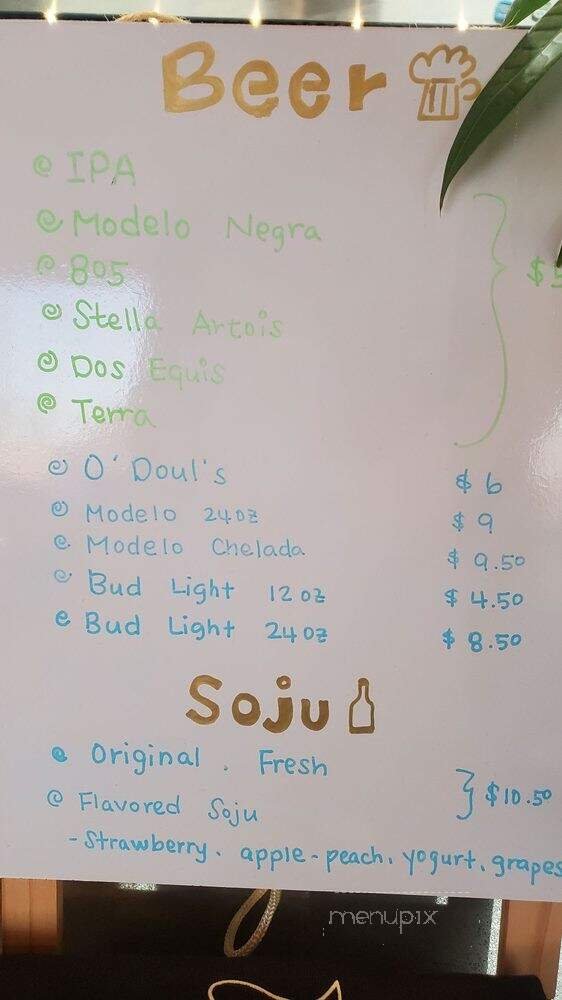 Beer
IPA
Modelo Negra
805
$5
Stella Artois
Dos Equis
Terra
O'Doul's $6
Modelo 24oz $9
Modelo Chelada $9.50
Bud Light 12oz $4.50
Bud Light 24oz $8.50
Soju
Original . Fresh
Flavored Soju $10.50
- Strawberry. apple - peach. yogurt. grapes
menupix